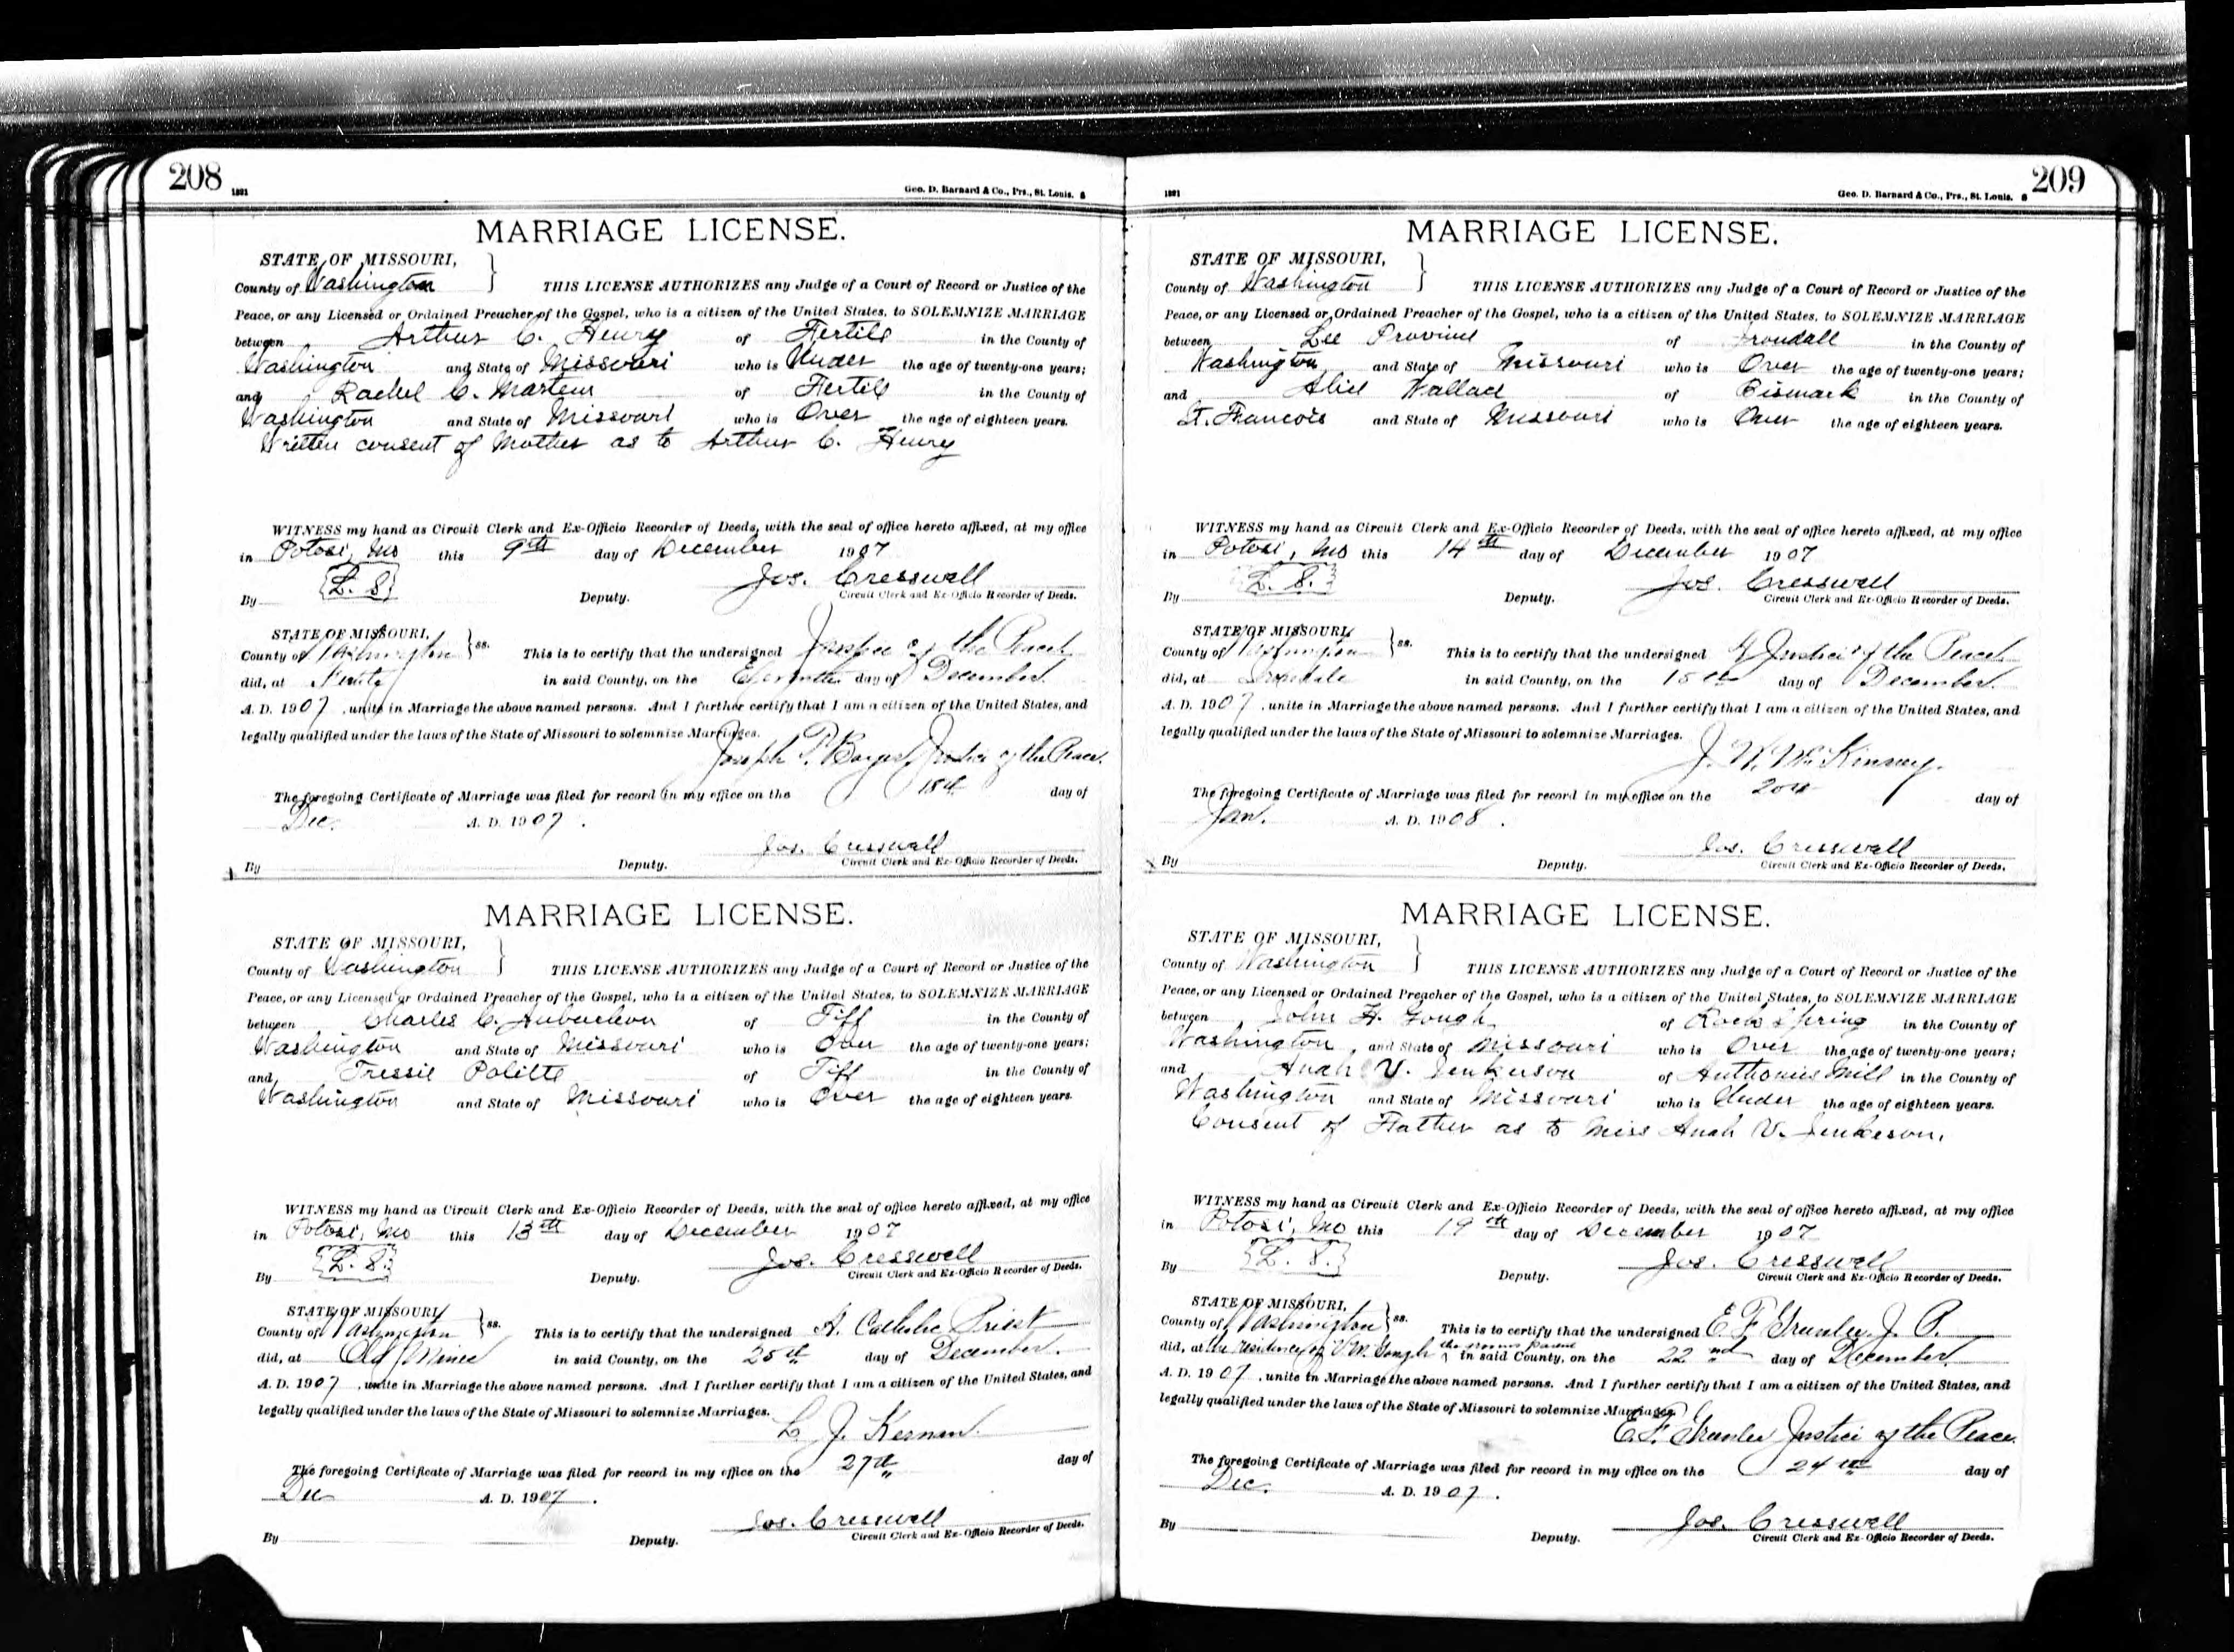 208
1891
Geo. D. Barnard & Co., Prs., St. Louis. 8
MARRIAGE LICENSE.
STATE OF MISSOURI,
County of Washington } THIS LICENSE AUTHORIZES any Judge of a Court of Record or Justice of the
Peace, or any Licensed or Ordained Preacher of the Gospel, who is a citizen of the United States, to SOLEMNIZE MARRIAGE
between Arthur C. Henry of Fertile in the County of
Washington and State of Missouri who is Under the age of twenty-one years;
and Rachel C. Martin of Fertile in the County of
Washington and State of Missouri who is Over the age of eighteen years.
Written consent of Mother as to Arthur C. Henry
WITNESS my hand as Circuit Clerk and Ex-Officio Recorder of Deeds, with the seal of office hereto affixed, at my office
in Potosi, Mo this 9th day of December 1907
{L. S} Jos. Cresswell
By Deputy. Circuit Clerk and Ex-Officio Recorder of Deeds.
STATE OF MISSOURI,
County of Washington } ss. This is to certify that the undersigned Justice of the Peace
did, at in said County, on the day of December
A. D. 1907, unite in Marriage the above named persons. And I further certify that I am a citizen of the United States, and
legally qualified under the laws of the State of Missouri to solemnize Marriages.
Joseph P. Justice of the Peace.
The foregoing Certificate of Marriage was filed for record in my office on the 18th day of
Dec. A. D. 1907.
Jos. Cresswell
By Deputy. Circuit Clerk and Ex-Officio Recorder of Deeds.
MARRIAGE LICENSE.
STATE OF MISSOURI,
County of Washington } THIS LICENSE AUTHORIZES any Judge of a Court of Record or Justice of the
Peace, or any Licensed or Ordained Preacher of the Gospel, who is a citizen of the United States, to SOLEMNIZE MARRIAGE
between Charles C. Aubuchon of Tiff in the County of
Washington and State of Missouri who is Over the age of twenty-one years;
and Tressie Politte of Tiff in the County of
Washington and State of Missouri who is Over the age of eighteen years.
WITNESS my hand as Circuit Clerk and Ex-Officio Recorder of Deeds, with the seal of office hereto affixed, at my office
in Potosi, Mo this 13th day of December 1907
{L. S.} Jos. Cresswell
By Deputy. Circuit Clerk and Ex-Officio Recorder of Deeds.
STATE OF MISSOURI,
County of Washington } ss. This is to certify that the undersigned A. Catholic Priest
did, at Old Mines in said County, on the 25th day of December.
A. D. 1907, unite in Marriage the above named persons. And I further certify that I am a citizen of the United States, and
legally qualified under the laws of the State of Missouri to solemnize Marriages.
L. J. Kernan.
The foregoing Certificate of Marriage was filed for record in my office on the 27th day of
Dec A. D. 1907.
Jos. Cresswell
By Deputy. Circuit Clerk and Ex-Officio Recorder of Deeds.
209
1891
Geo. D. Barnard & Co., Prs., St. Louis. 8
MARRIAGE LICENSE.
STATE OF MISSOURI,
County of Washington } THIS LICENSE AUTHORIZES any Judge of a Court of Record or Justice of the
Peace, or any Licensed or Ordained Preacher of the Gospel, who is a citizen of the United States, to SOLEMNIZE MARRIAGE
between Lee Province of Irondale in the County of
Washington and State of Missouri who is Over the age of twenty-one years;
and Alice Wallace of Bismark in the County of
St. Francois and State of Missouri who is Over the age of eighteen years.
WITNESS my hand as Circuit Clerk and Ex-Officio Recorder of Deeds, with the seal of office hereto affixed, at my office
in Potosi, Mo this 14th day of December 1907
{L. S.} Jos. Cresswell
By Deputy. Circuit Clerk and Ex-Officio Recorder of Deeds.
STATE OF MISSOURI,
County of Washington } ss. This is to certify that the undersigned A Justice of the Peace
did, at Irondale in said County, on the 15th day of December.
A. D. 1907, unite in Marriage the above named persons. And I further certify that I am a citizen of the United States, and
legally qualified under the laws of the State of Missouri to solemnize Marriages.
J. W. McKinney.
The foregoing Certificate of Marriage was filed for record in my office on the 20th day of
Jan. A. D. 1908.
Jos. Cresswell
By Deputy. Circuit Clerk and Ex-Officio Recorder of Deeds.
MARRIAGE LICENSE.
STATE OF MISSOURI,
County of Washington } THIS LICENSE AUTHORIZES any Judge of a Court of Record or Justice of the
Peace, or any Licensed or Ordained Preacher of the Gospel, who is a citizen of the United States, to SOLEMNIZE MARRIAGE
between John H. Gough of Rock Spring in the County of
Washington, and State of Missouri who is Over the age of twenty-one years;
and Anah V. Jenkerson of Anthonies Mill in the County of
Washington and State of Missouri who is Under the age of eighteen years.
Consent of Father as to Miss Anah V. Jenkerson.
WITNESS my hand as Circuit Clerk and Ex-Officio Recorder of Deeds, with the seal of office hereto affixed, at my office
in Potosi, Mo this 19th day of December 1907
{L. S.} Jos. Cresswell
By Deputy. Circuit Clerk and Ex-Officio Recorder of Deeds.
STATE OF MISSOURI,
County of Washington } ss. This is to certify that the undersigned E. F. J. P.
did, at the residence of Gough the grooms parent in said County, on the 22nd day of December
A. D. 1907, unite in Marriage the above named persons. And I further certify that I am a citizen of the United States, and
legally qualified under the laws of the State of Missouri to solemnize Marriages.
E. F. Justice of the Peace.
The foregoing Certificate of Marriage was filed for record in my office on the 24th day of
Dec. A. D. 1907.
Jos. Cresswell
By Deputy. Circuit Clerk and Ex-Officio Recorder of Deeds.